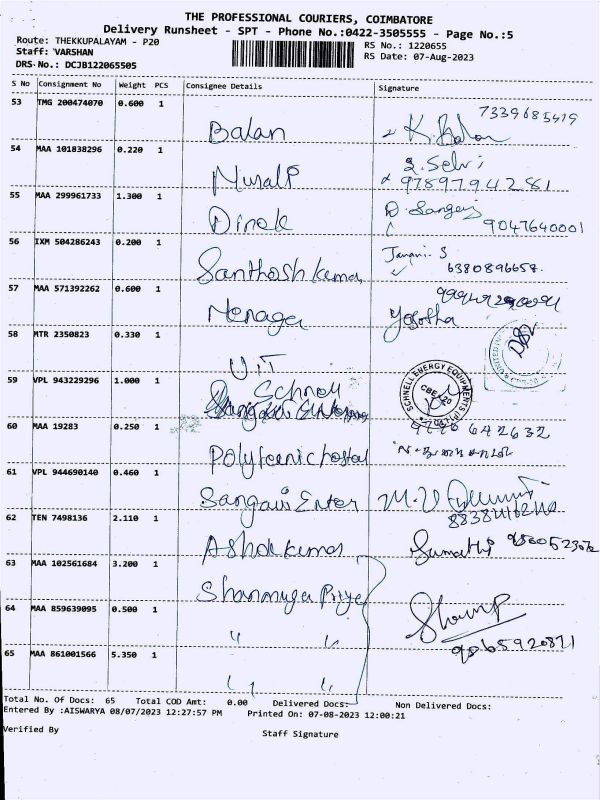 THE PROFESSIONAL COURIERS, COIMBATORE
Delivery Runsheet - SPT - Phone No.:0422-3505555 - Page No.:5
Route: THEKKUPALAYAM - P20
Staff: VARSHAN
DRS No.: DCJB122065505
RS No.: 1220655
RS Date: 07-Aug-2023
S No Consignment No Weight PCS Consignee Details Signature
53 TMG 200474070 0.600 1 Balan K. Balan 7339685419
54 MAA 101838296 0.220 1 Murali S. Selvi 97897942281
55 MAA 299961733 1.300 1 D. Sangej 9047640001
56 IXM 504286243 0.200 1 Santhosh kumar Janani. S 6380896658.
57 MAA 571392262 0.600 1 Menaga
58 MTR 2350823 0.330 1 U.I.T
59 VPL 943229296 1.000 1 Schnell SCHNELL ENERGY EQUIPMENTS CBE-20
60 MAA 19283 0.250 1 Polytecnic hostal 642632
61 VPL 944690140 0.460 1 Sangavi Enter M. V
62 TEN 7498136 2.110 1 Ashok kumar Sumathi
63 MAA 102561684 3.200 1 Shanmuga Priya
64 MAA 859639095 0.500 1 " "
9065920871
65 MAA 861001566 5.350 1 " "
Total No. Of Docs: 65 Total COD Amt: 0.00 Delivered Docs: Non Delivered Docs:
Entered By :AISWARYA 08/07/2023 12:27:57 PM Printed On: 07-08-2023 12:00:21
Verified By Staff Signature